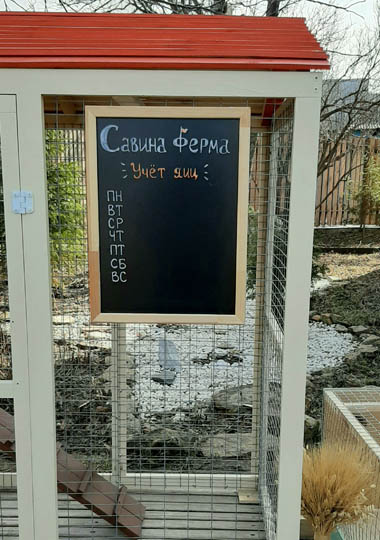 Савина ферма
Учёт яиц
ПН
ВТ
СР
ЧТ
ПТ
СБ
ВС